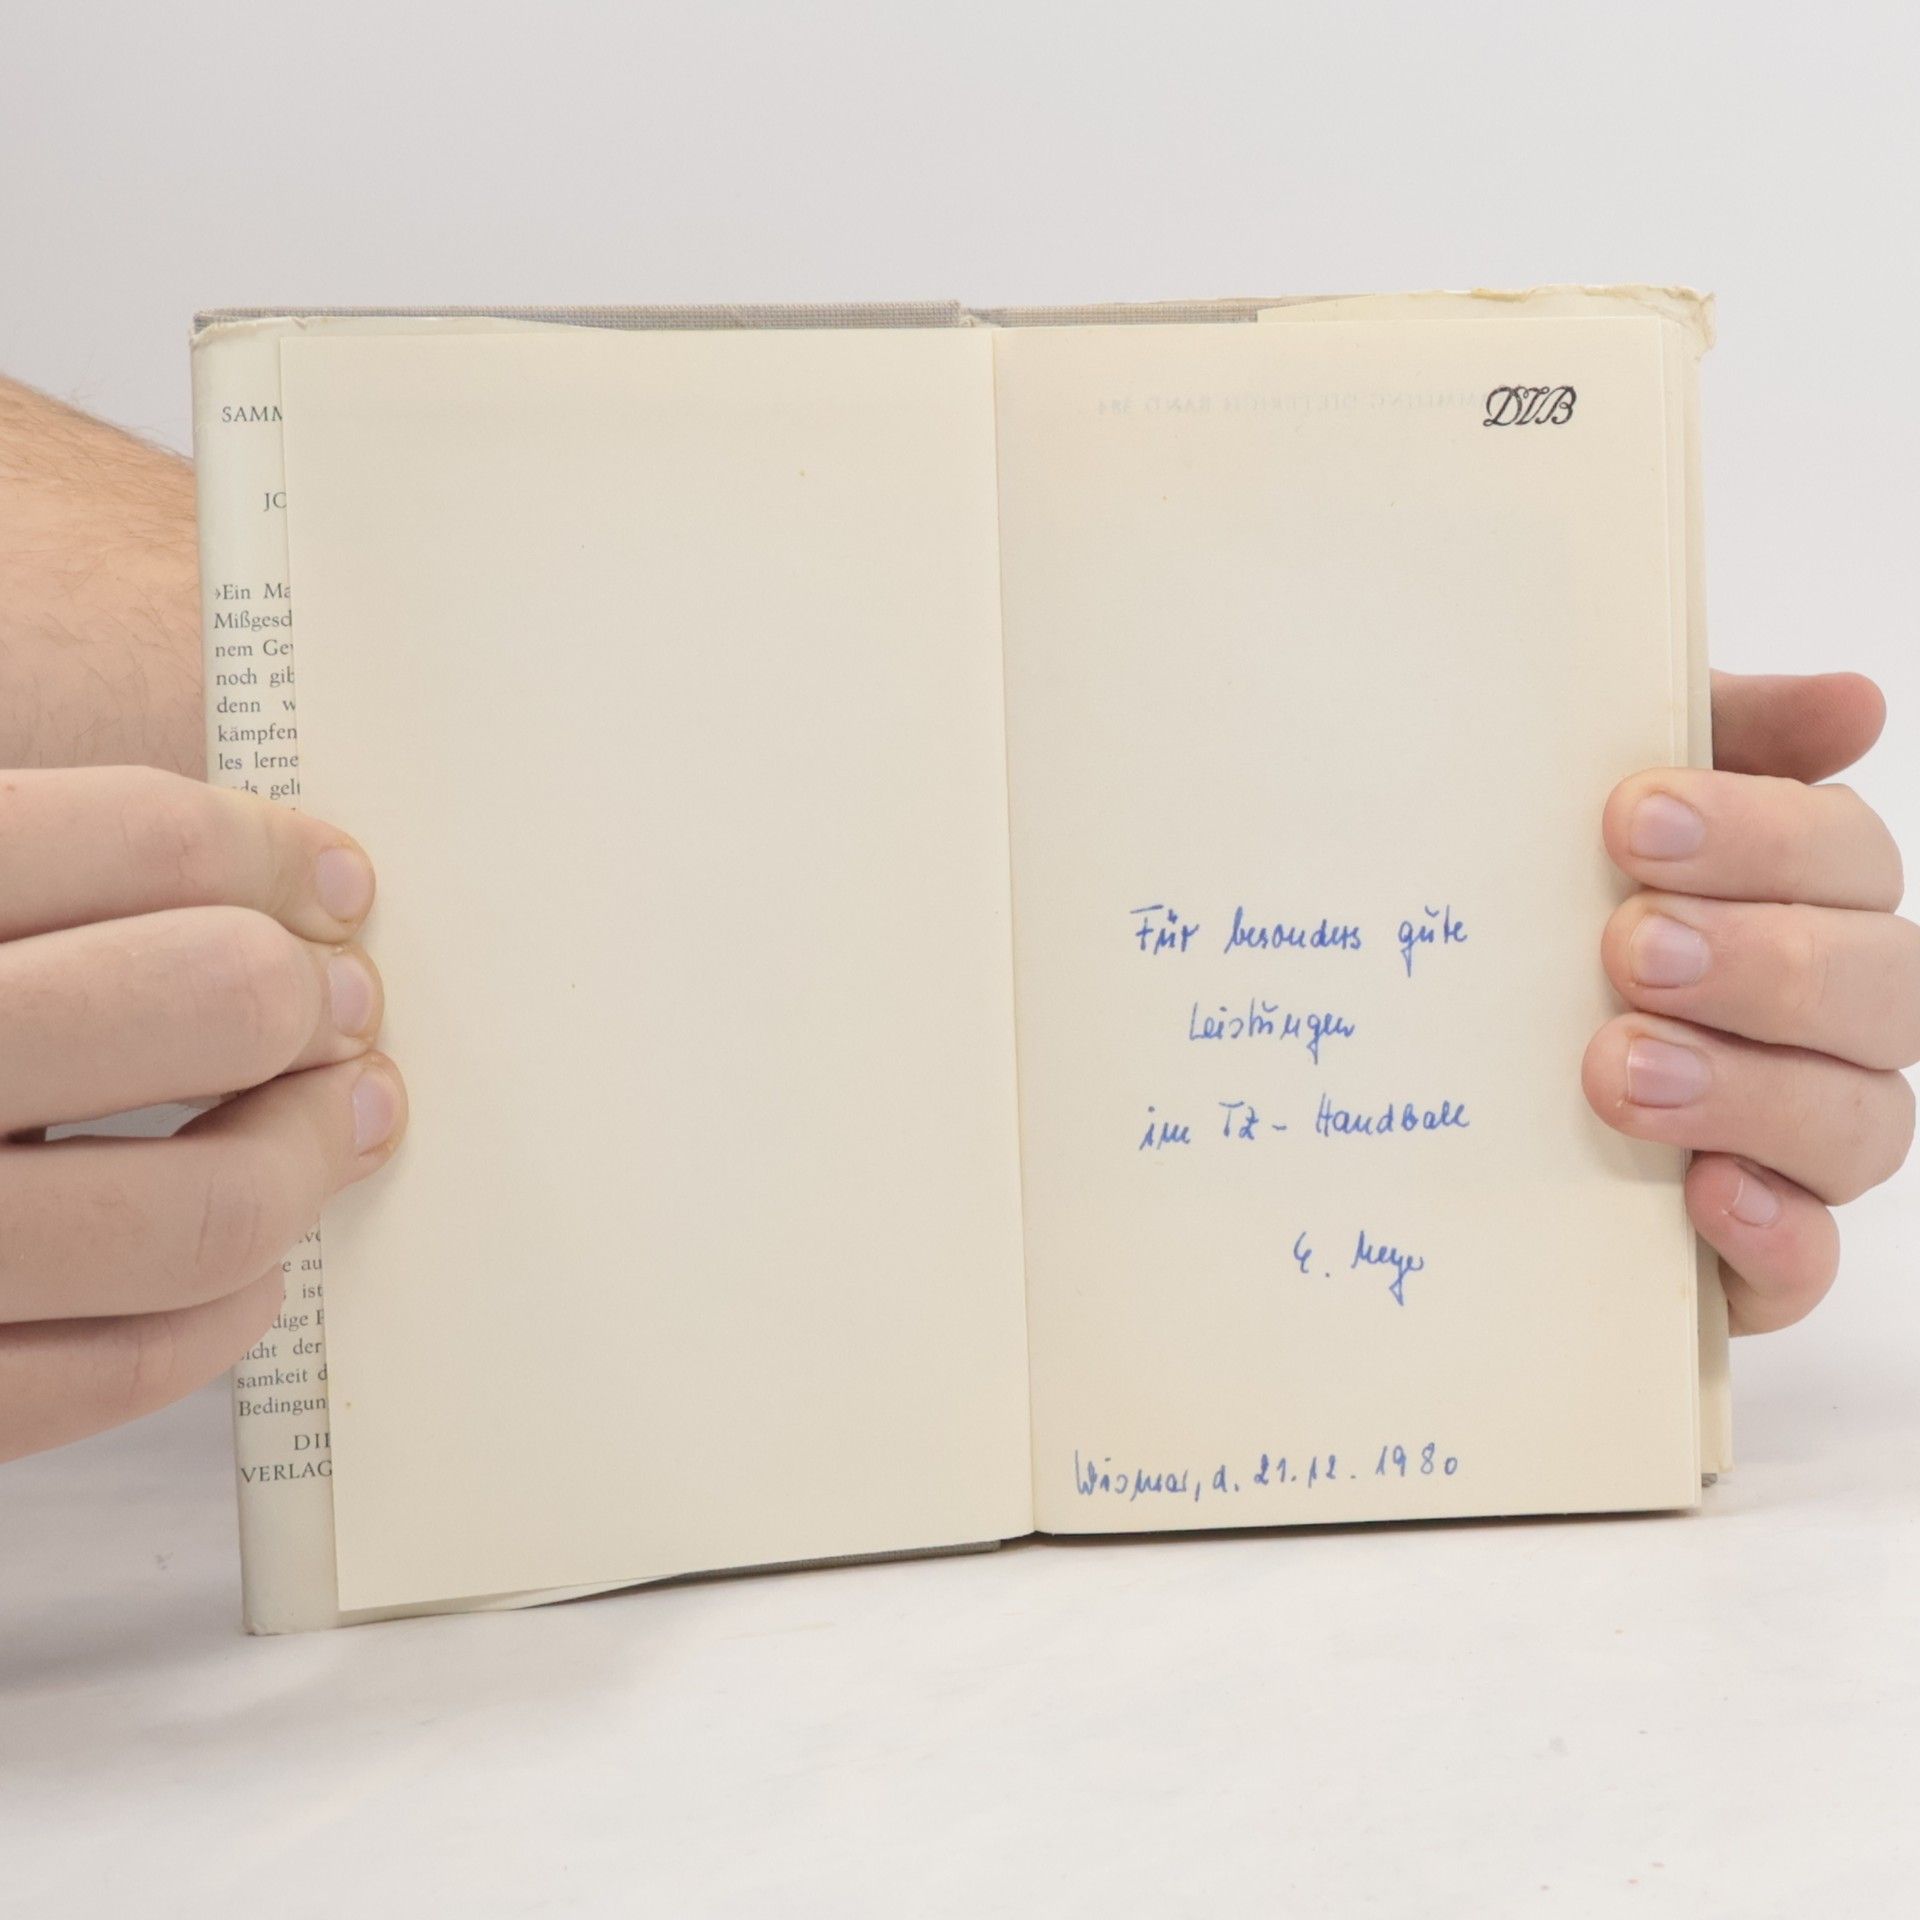 SAMM
JO
›Ein Ma
Mißgesch
nem Gew
noch gib
denn w
kämpfen
les lerne
ds gelt
e au
ist
dige F
icht der
samkeit d
Bedingun
DIE
VERLAG
DVB
SAMMLUNG DIETERICH BAND 384
Für besonders gute
Leistungen
im TZ - Handball
E. Meyer
Wismar, d. 21.12.1980